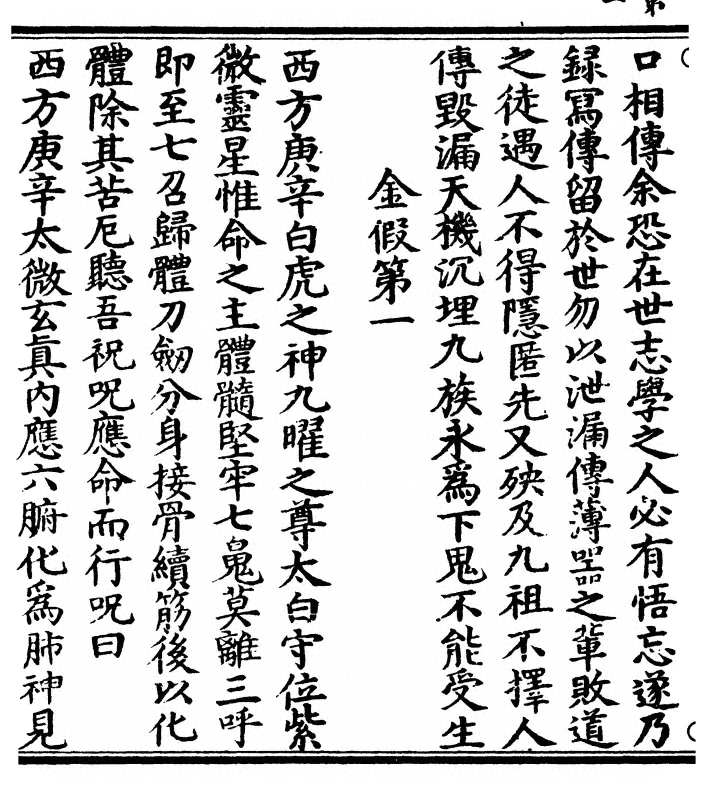 口相傳余恐在世志學之人必有悟忘遂乃
録寫傳留於世勿以泄漏傳薄噐之輩敗道
之徒遇人不得隱匿先又殃及九祖不擇人
傳毀漏天機沉埋九族永爲下鬼不能受生
金假第一
西方庚辛白虎之神九曜之尊太白守位紫
微靈星惟命之主體髓堅牢七䰟莫離三呼
即至七召歸體刀劔分身接骨續筋後以化
體除其苦厄聽吾祝呪應命而行呪曰
西方庚辛太微玄眞内應六腑化爲肺神見